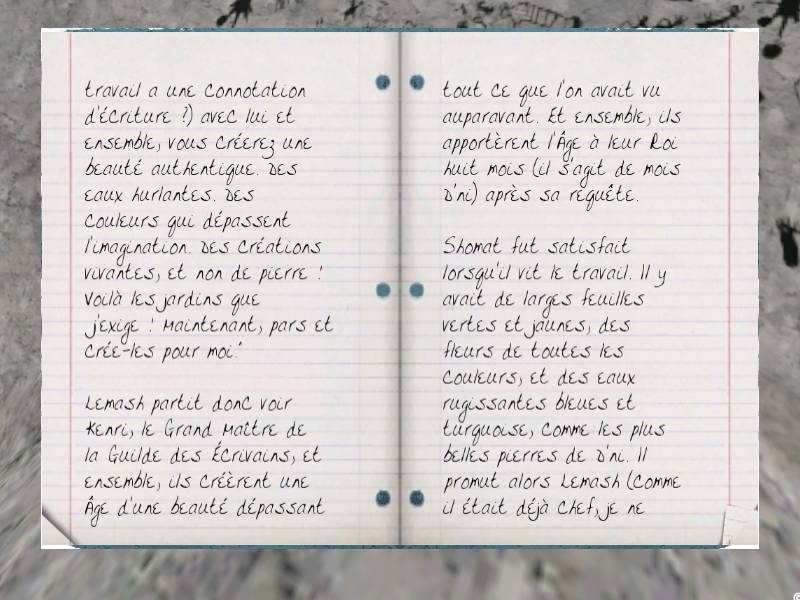 travail a une connotation
d'écriture ?) avec lui et
ensemble, vous créerez une
beauté authentique. Des
eaux hurlantes. Des
couleurs qui dépassent
l'imagination. Des créations
vivantes, et non de pierre !
Voilà les jardins que
j'exige ! Maintenant, pars et
crée-les pour moi."
Lemash partit donc voir
Kenri, le Grand Maître de
la Guilde des Écrivains, et
ensemble, ils créèrent une
Âge d'une beauté dépassant
tout ce que l'on avait vu
auparavant. Et ensemble, ils
apportèrent l'Âge à leur Roi
huit mois (il s'agit de mois
D'ni) après sa requête.
Shomat fut satisfait
lorsqu'il vit le travail. Il y
avait de larges feuilles
vertes et jaunes, des
fleurs de toutes les
couleurs, et des eaux
rugissantes bleues et
turquoise, comme les plus
belles pierres de D'ni. Il
promut alors Lemash (comme
il était déjà chef, je ne